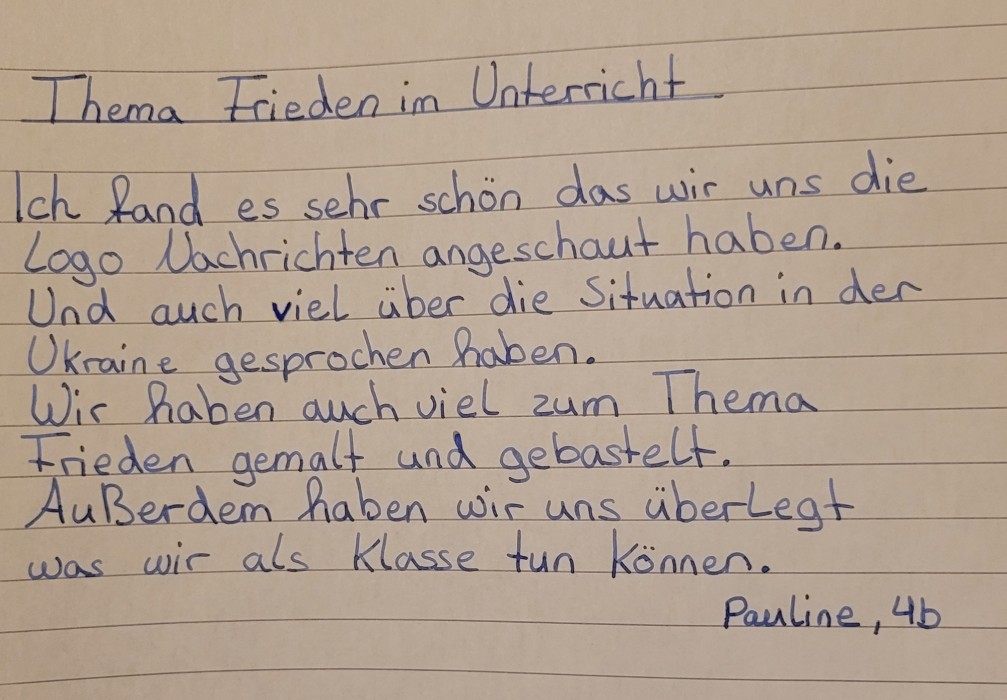 Thema Frieden im Unterricht
Ich fand es sehr schön das wir uns die
Logo Nachrichten angeschaut haben.
Und auch viel über die Situation in der
Ukraine gesprochen haben.
Wir haben auch viel zum Thema
Frieden gemalt und gebastelt.
Außerdem haben wir uns überlegt
was wir als Klasse tun können.
Pauline, 4b